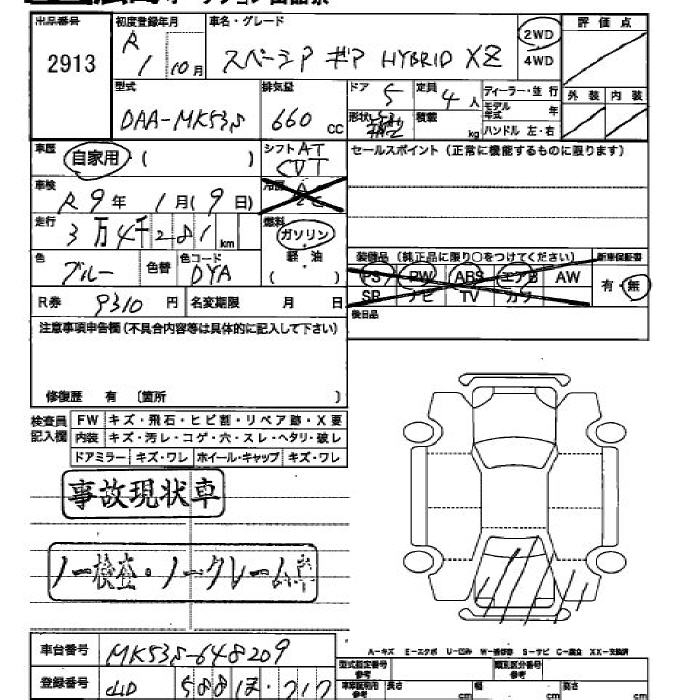 出品番号 初度登録年月 車名・グレード 評価点
2913
R 1 10月 スペーシア ギア HYBRID XZ 2WD 4WD
型式 排気量 ドア 定員 ディーラー・並行 外装 内装
DAA-MK53S 660 CC 5 4人 モデル年式 年
形状 積載 kg ハンドル 左・右
車歴 自家用 ( ) シフト AT CVT セールスポイント (正常に機能するものに限ります)
車検 R9年 1月(9日) 冷房 AC
走行 3万4千281km 燃料 ガソリン 軽油 ( )
色 ブルー 色替 色コード DYA
装備品 (純正品に限り○をつけてください) 新車保証書
PS PW ABS エアB AW 有・無
SR ナビ TV カワ
R券 9310円 名変期限 月 日 後日品
注意事項申告欄 (不具合内容等は具体的に記入して下さい)
修復歴 有 〔箇所 〕
検査員記入欄 FW キズ・飛石・ヒビ割・リペア跡・X要
内装 キズ・汚レ・コゲ・穴・スレ・ヘタリ・破レ
ドアミラー キズ・ワレ ホイール・キャップ キズ・ワレ
事故現状車
ノー検査・ノークレーム車
A-キズ E-エクボ U-凹み W-補修跡 S-サビ C-腐食 XX-交換済
車台番号 MK53S-648209
型式指定番号 参考 類別区分番号 参考
登録番号 588
車庫証明用 参考 長さ cm 幅 cm 高さ cm